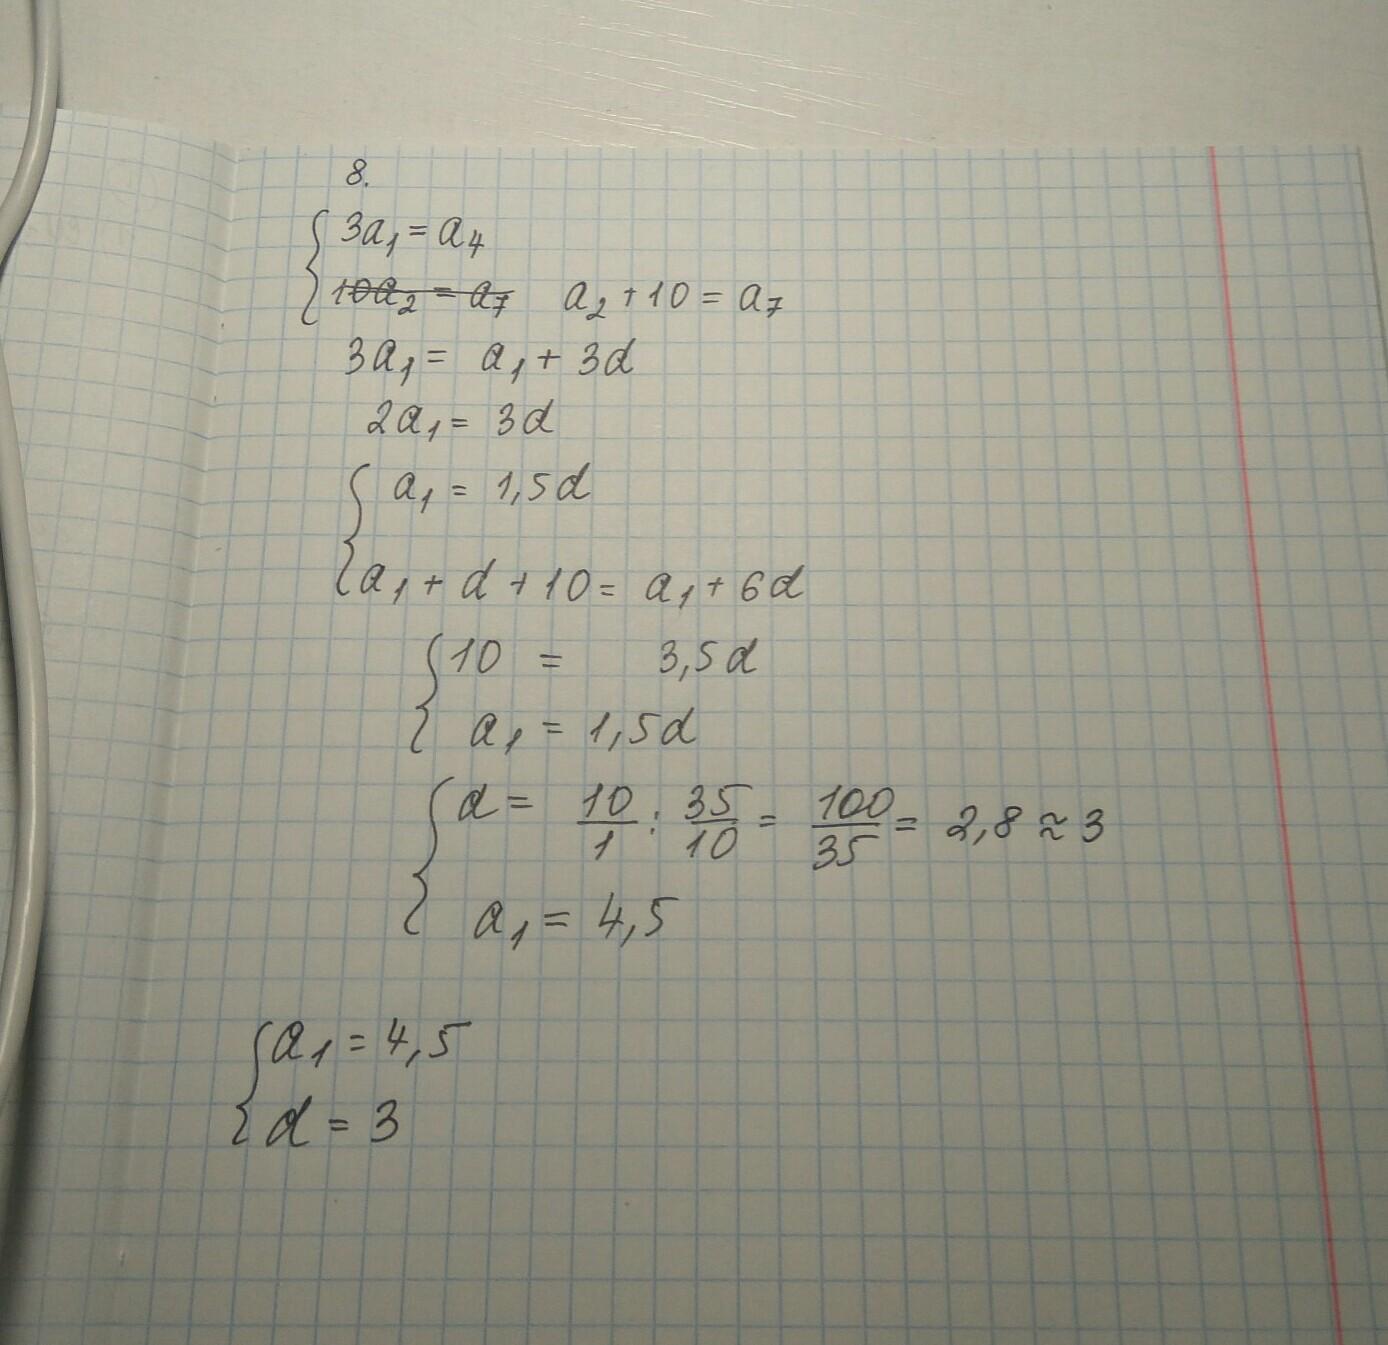 8.
3a₁ = a₄
10a₂ = a₇ a₂ + 10 = a₇
3a₁ = a₁ + 3d
2a₁ = 3d
a₁ = 1,5d
a₁ + d + 10 = a₁ + 6d
10 = 3,5d
a₁ = 1,5d
d = 10/1 : 35/10 = 100/35 = 2,8 ≈ 3
a₁ = 4,5
a₁ = 4,5
d = 3